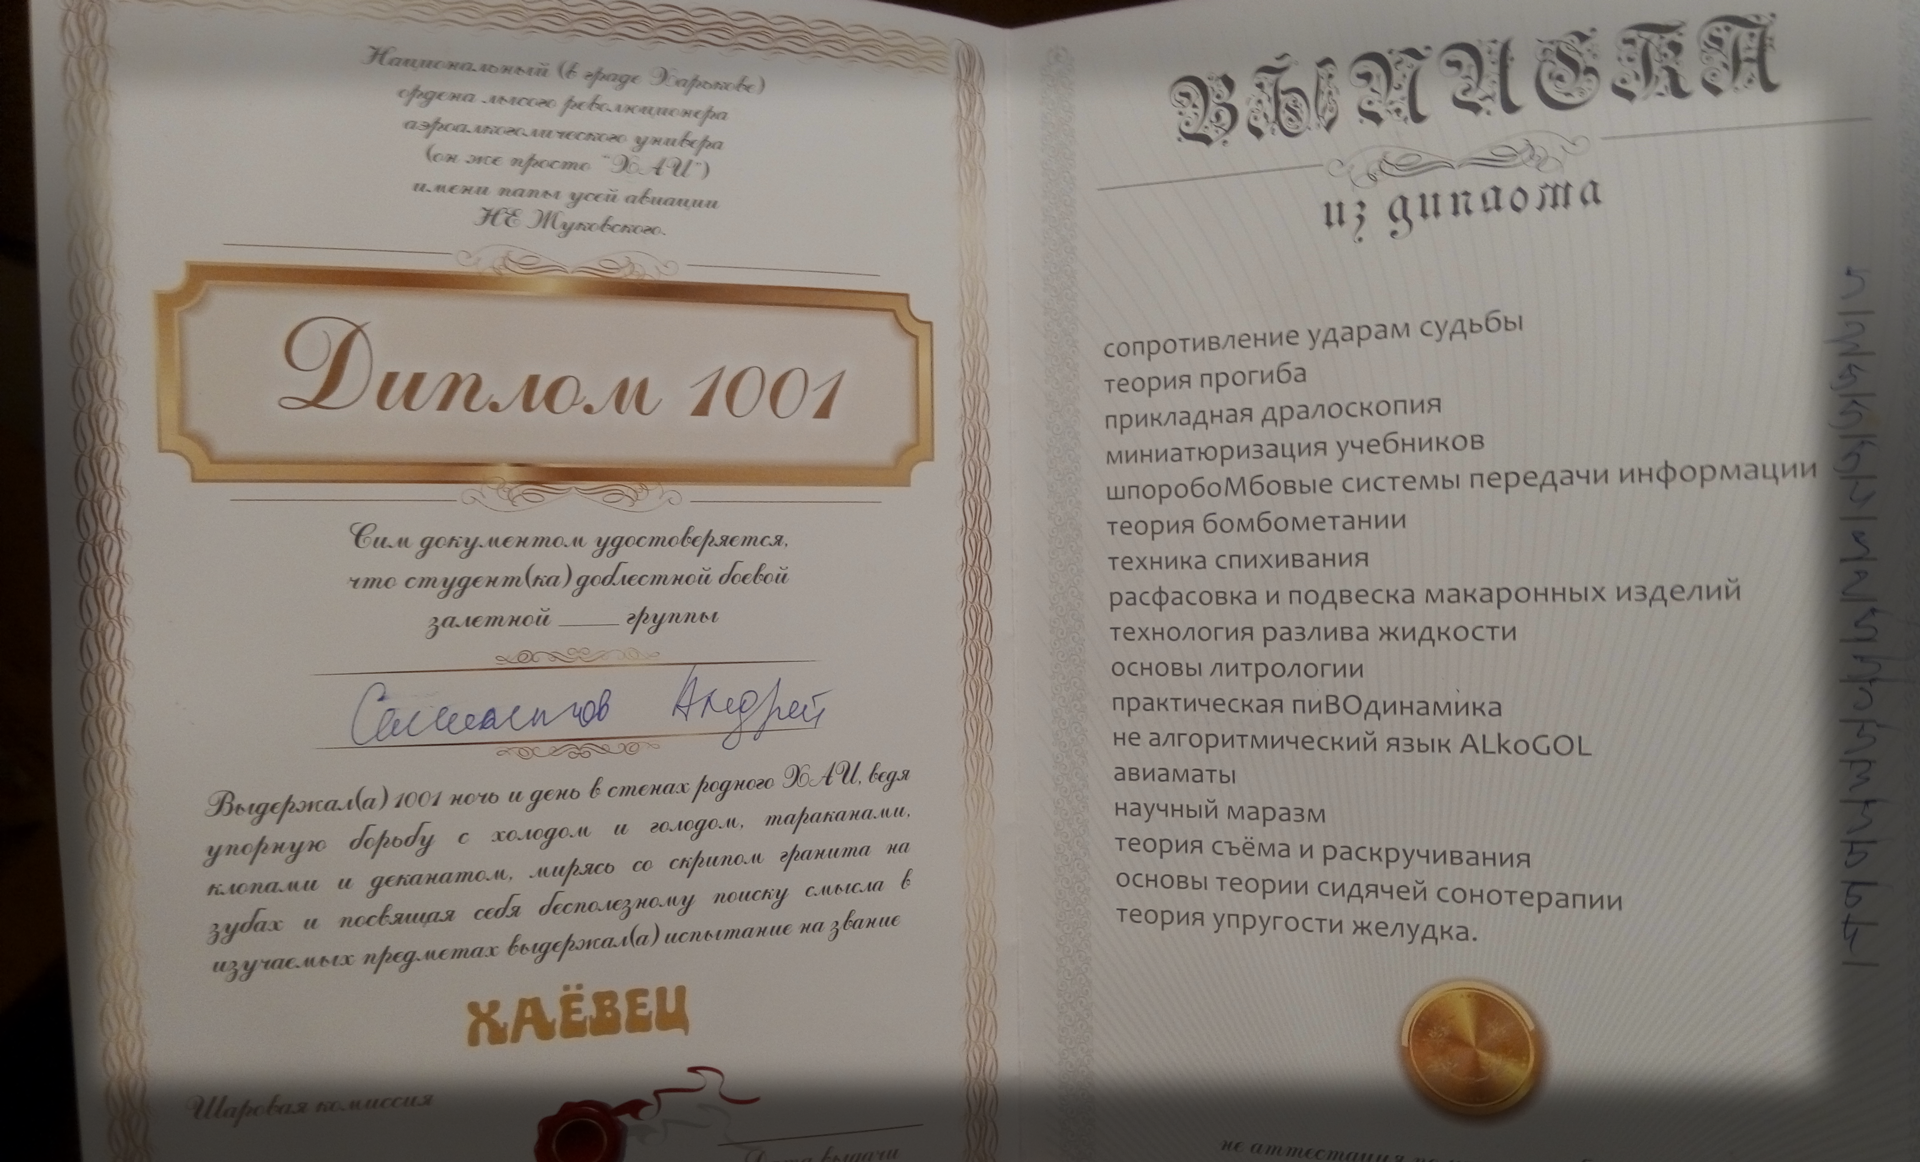 Национальный (в граде Харькове)
ордена лысого революционера
аэроалкоголического универа
(он же просто "ХАИ")
имени папы усей авиации
НЕ Жуковского.
Диплом 1001
Сим документом удостоверяется,
что студент(ка) доблестной боевой
залетной ____ группы
Андрей
Выдержал(а) 1001 ночь и день в стенах родного ХАИ, ведя
упорную борьбу с холодом и голодом, тараканами,
клопами и деканатом, мирясь со скрипом гранита на
зубах и посвящая себя бесполезному поиску смысла в
изучаемых предметах выдержал(а) испытание на звание
ХАЁВЕЦ
Шаровая комиссия
Дата выдачи
ВЫПИСКА
из диплома
сопротивление ударам судьбы
теория прогиба
прикладная дралоскопия
миниатюризация учебников
шпоробоМбовые системы передачи информации
теория бомбометании
техника спихивания
расфасовка и подвеска макаронных изделий
технология разлива жидкости
основы литрологии
практическая пиВОдинамика
не алгоритмический язык ALkoGOL
авиаматы
научный маразм
теория съёма и раскручивания
основы теории сидячей сонотерапии
теория упругости желудка.
не аттестация